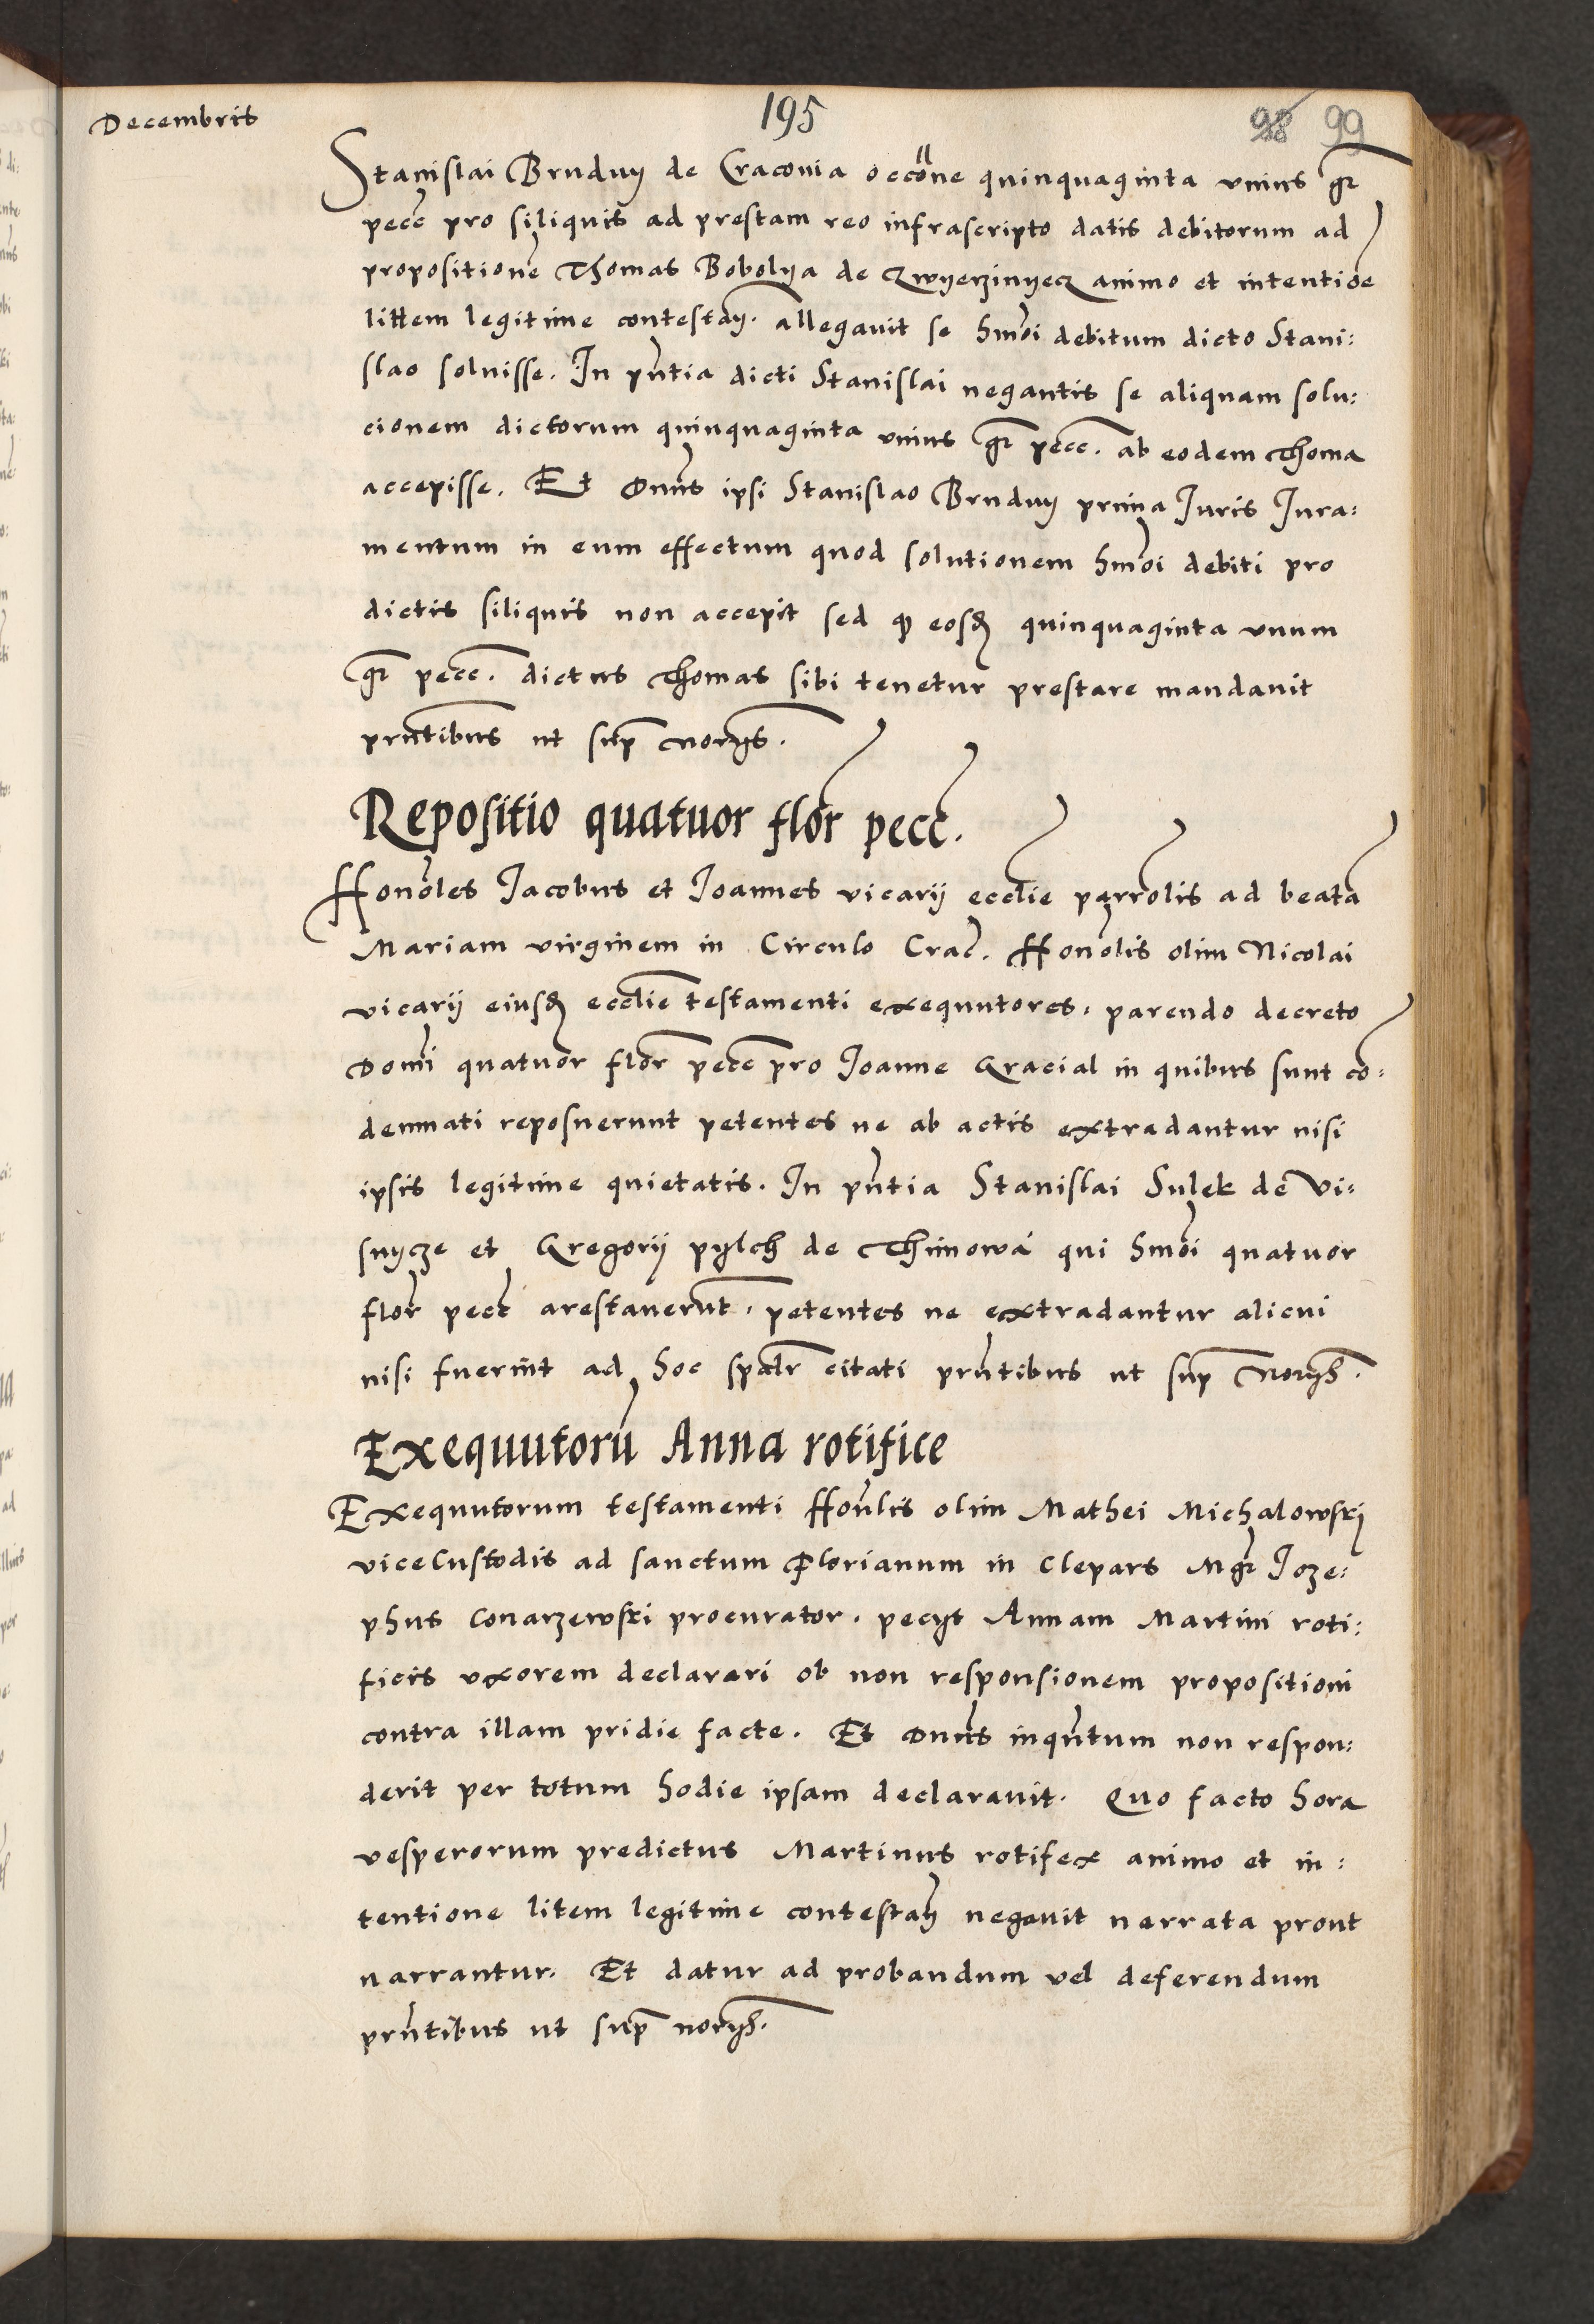 Decembris
195
98 99
Stanislai Brnduÿ de Craconia occone quinquaginta vnius gr
pecc pro siliquis ad prestam reo infrascripto datis debitorum ad
propositione Thomas Bobolÿa de Zwÿerzinÿecz animo et intentioe
littem legitime contestaÿ. allegauit se hmoi debitum dicto Stani:
slao soluisse. In pntia dicti Stanislai negantis se aliquam solu:
cionem dictorum quinquaginta vnius gr pecc. ab eodem Thoma
accepisse. Et Dnus ipsi Stanislao Brnduÿ prima Juris Jura:
mentum in eum effectum quod solutionem hmoi debiti pro
dictis siliquis non accepit sed qp eosd quinquaginta vnum
gr pecc. dictus Thomas sibi tenetur prestare mandauit
prntibus ut sup Norÿs.
Repositio quatuor flor pecc.
Honoles Jacobus et Joannes vicarij ecclie parrolis ad beata
Mariam virginem in Circulo Crac. Honolis olim Nicolai
vicarij eiusd ecclie testamenti exequutores, parendo decreto
Domi quatuor flor pecc pro Joanne Gracial in quibus sunt co:
demnati reposuerunt petentes ne ab actis extradantur nisi
ipsis legitime quietatis. In pntia Stanislai Sulek de Vi:
snÿcze et Gregorij pÿlch de Thimowa qui hmoi quatuor
flor pecc arestauerunt, petentes ne extradantur alicui
nisi fuerint ad hoc spalr citati prntibus ut sup Norÿs.
Exequutoru Anna rotifice
Exequutorum testamenti Honlis olim Mathei Michalowskj
viceCustodis ad sanctum Florianum in Clepars Mgr Joze:
phus Conarzewski procurator. pecÿt Annam Martini roti:
ficis vxorem declarari ob non responsionem propositioni
contra illam pridie facte. Et Dnus inqntum non respon:
derit per totum hodie ipsam declarauit. Quo facto hora
vesperorum predictus Martinus rotifex animo et in:
tentione litem legitime contestaÿ negauit narrata prout
narrantur. Et datur ad probandum vel deferendum
prntibus ut sup norÿs.